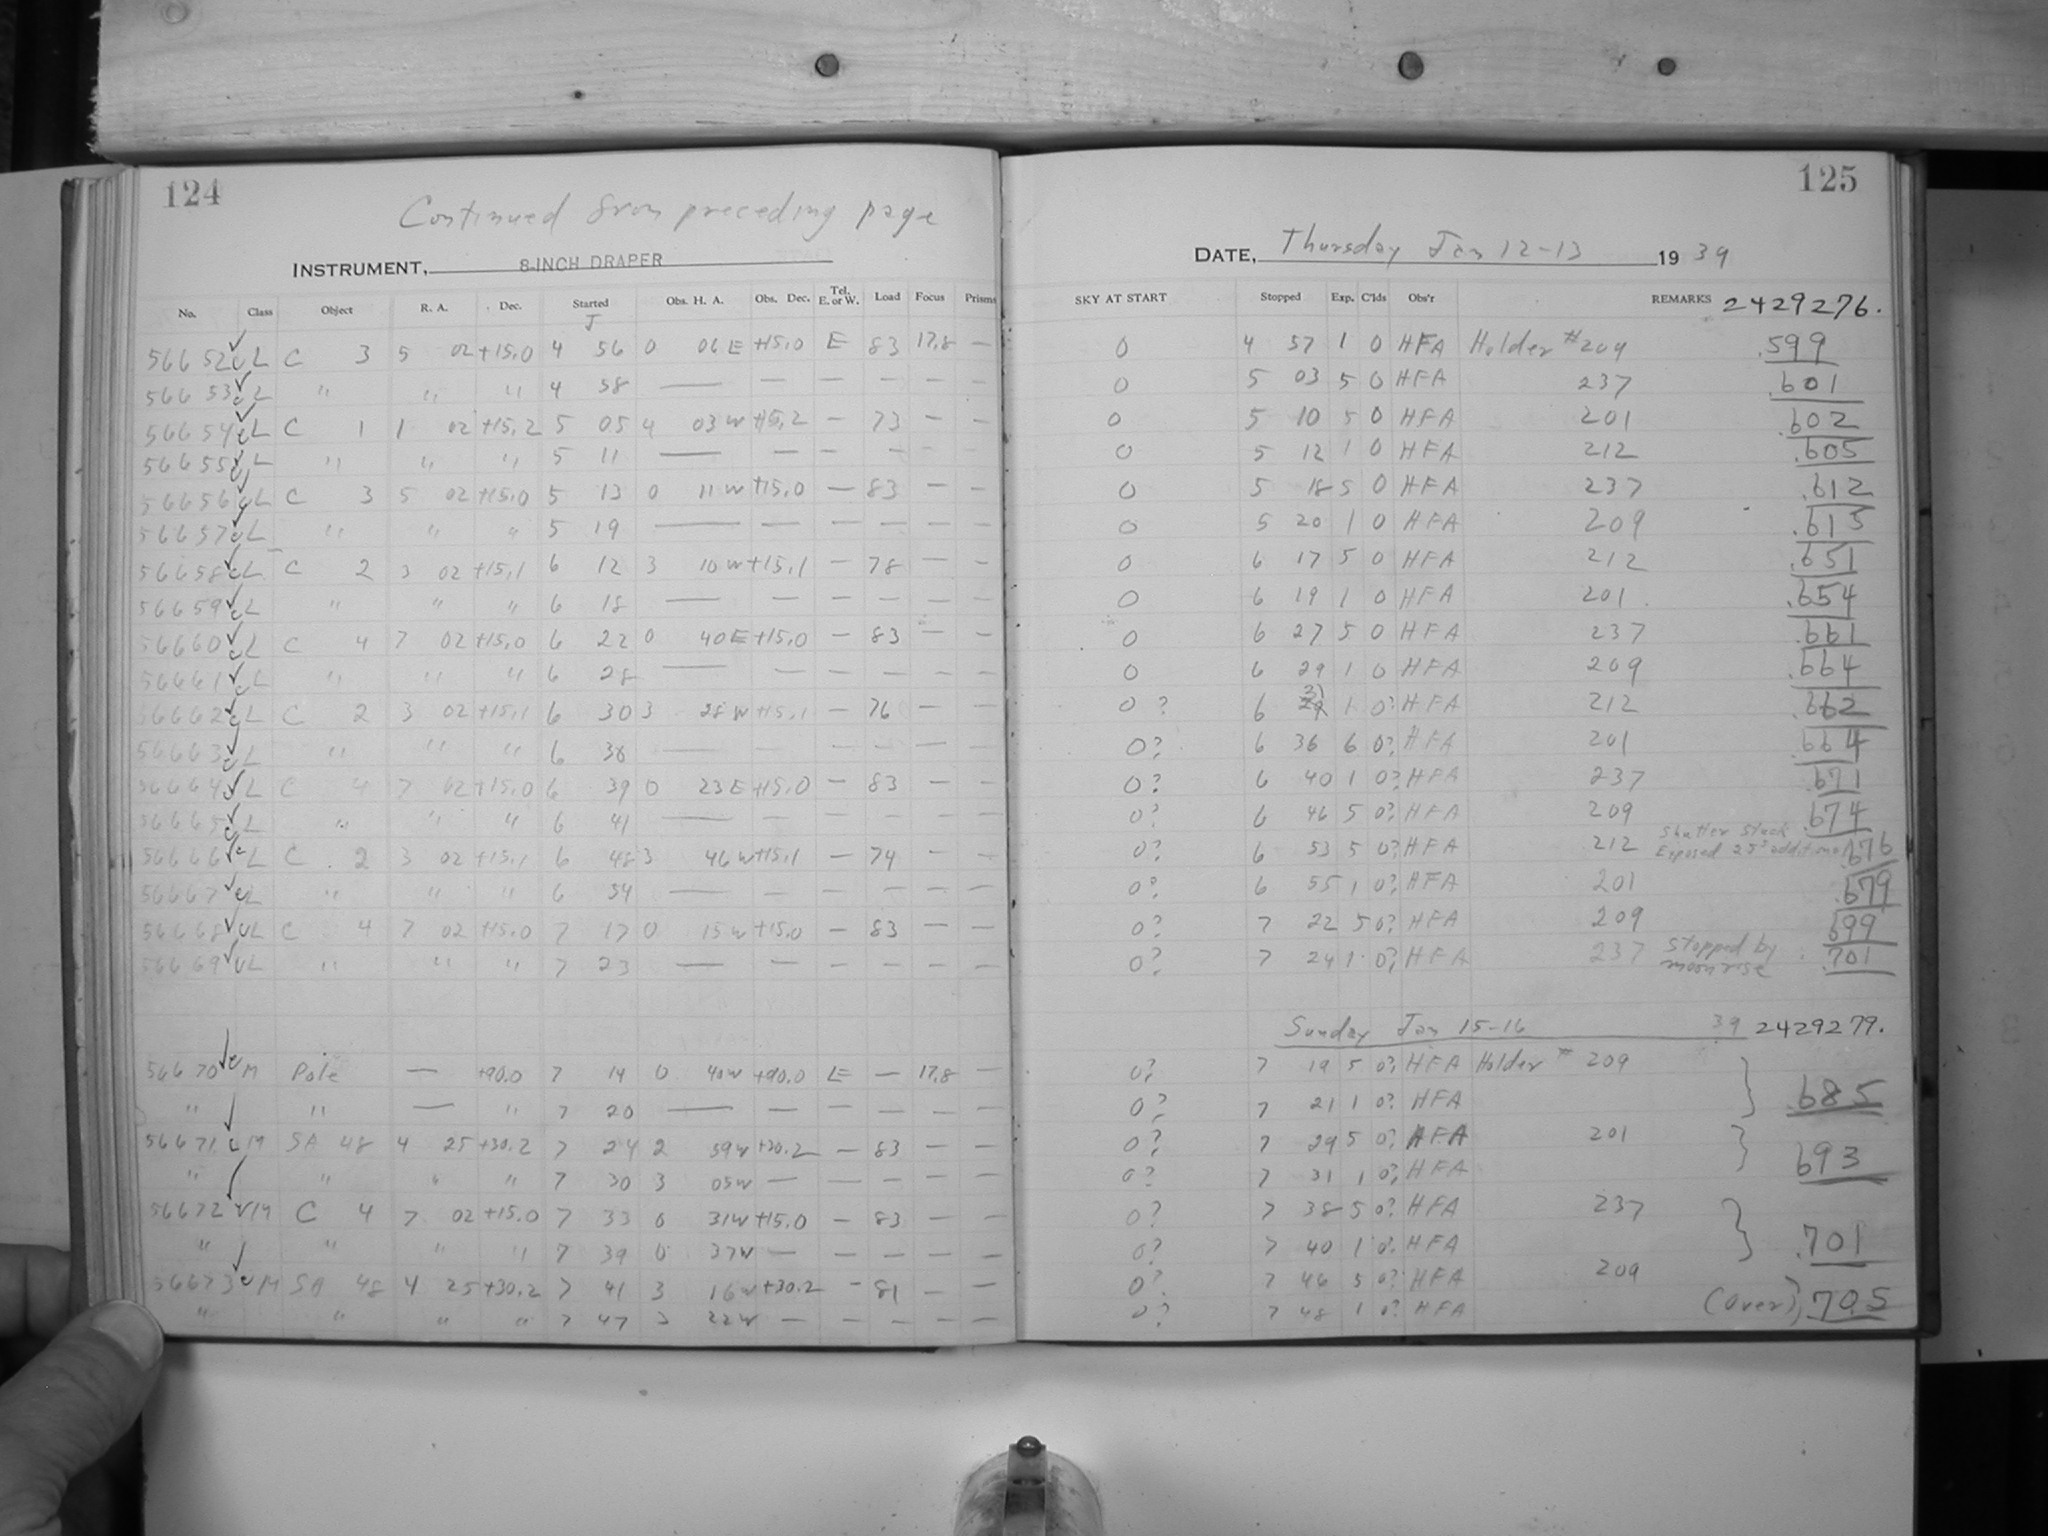 124
Continued from preceding page
INSTRUMENT, 8-INCH DRAPER
No. Class Object R. A. Dec. Started Obs. H. A. Obs. Dec. Tel. E. or W. Load Focus Prisms
J
56652 L C 3 5 02 +15.0 4 56 0 06 E +15.0 E 83 17.8 —
56653 L " " " 4 58 — — — — — —
56654 L C 1 1 02 +15.2 5 05 4 03 W +15.2 — 73 — —
56655 L " " " 5 11 — — — — — —
56656 L C 3 5 02 +15.0 5 13 0 11 W +15.0 — 83 — —
56657 L " " " 5 19 — — — — — —
56658 L C 2 3 02 +15.1 6 12 3 10 W +15.1 — 78 — —
56659 L " " " 6 18 — — — — — —
56660 L C 4 7 02 +15.0 6 22 0 40 E +15.0 — 83 — —
56661 L " " " 6 28 — — — — — —
56662 L C 2 3 02 +15.1 6 30 3 28 W +15.1 — 76 — —
56663 L " " " 6 38 — — — — — —
56664 L C 4 7 02 +15.0 6 39 0 23 E +15.0 — 83 — —
56665 L " " " 6 41 — — — — — —
56666 L C 2 3 02 +15.1 6 48 3 46 W +15.1 — 74 — —
56667 L " " " 6 54 — — — — — —
56668 L C 4 7 02 +15.0 7 17 0 15 W +15.0 — 83 — —
56669 L " " " 7 23 — — — — — —
56670 M Pole — +90.0 7 14 0 40 W +90.0 E — 17.8 —
" " — " 7 20 — — — — — —
56671 M SA 48 4 25 +30.2 7 24 2 59 W +30.2 — 83 — —
" " " " 7 30 3 05 W — — — — —
56672 M C 4 7 02 +15.0 7 33 0 31 W +15.0 — 83 — —
" " " " 7 39 0 37 W — — — — —
56673 M SA 48 4 25 +30.2 7 41 3 16 W +30.2 — 81 — —
" " " " 7 47 3 22 W — — — — —
125
DATE, Thursday Jan 12-13 1939
SKY AT START Stopped Exp. C'lds Obs'r REMARKS 2429276.
0 4 57 1 0 HFA Holder # 209 .599
0 5 03 5 0 HFA 237 .601
0 5 10 5 0 HFA 201 .602
0 5 12 1 0 HFA 212 .605
0 5 18 5 0 HFA 237 .612
0 5 20 1 0 HFA 209 .615
0 6 17 5 0 HFA 212 .651
0 6 19 1 0 HFA 201 .654
0 6 27 5 0 HFA 237 .661
0 6 29 1 0 HFA 209 .664
0 ? 6 31 1 0? HFA 212 .662
0? 6 36 6 0? HFA 201 .664
0? 6 40 1 0? HFA 237 .671
0? 6 46 5 0? HFA 209 .674
0? 6 53 5 0? HFA 212 Shutter stuck Exposed 25s additional .676
0? 6 55 1 0? HFA 201 .679
0? 7 22 5 0? HFA 209 .699
0? 7 24 1 0? HFA 237 Stopped by moonrise .701
Sunday Jan 15-16 39 2429279.
0? 7 19 5 0? HFA Holder # 209
0? 7 21 1 0? HFA .685
0? 7 29 5 0? HFA 201
0? 7 31 1 0? HFA .693
0? 7 38 5 0? HFA 237
0? 7 40 1 0? HFA .701
0? 7 46 5 0? HFA 209
0? 7 48 1 0? HFA (Over) .705